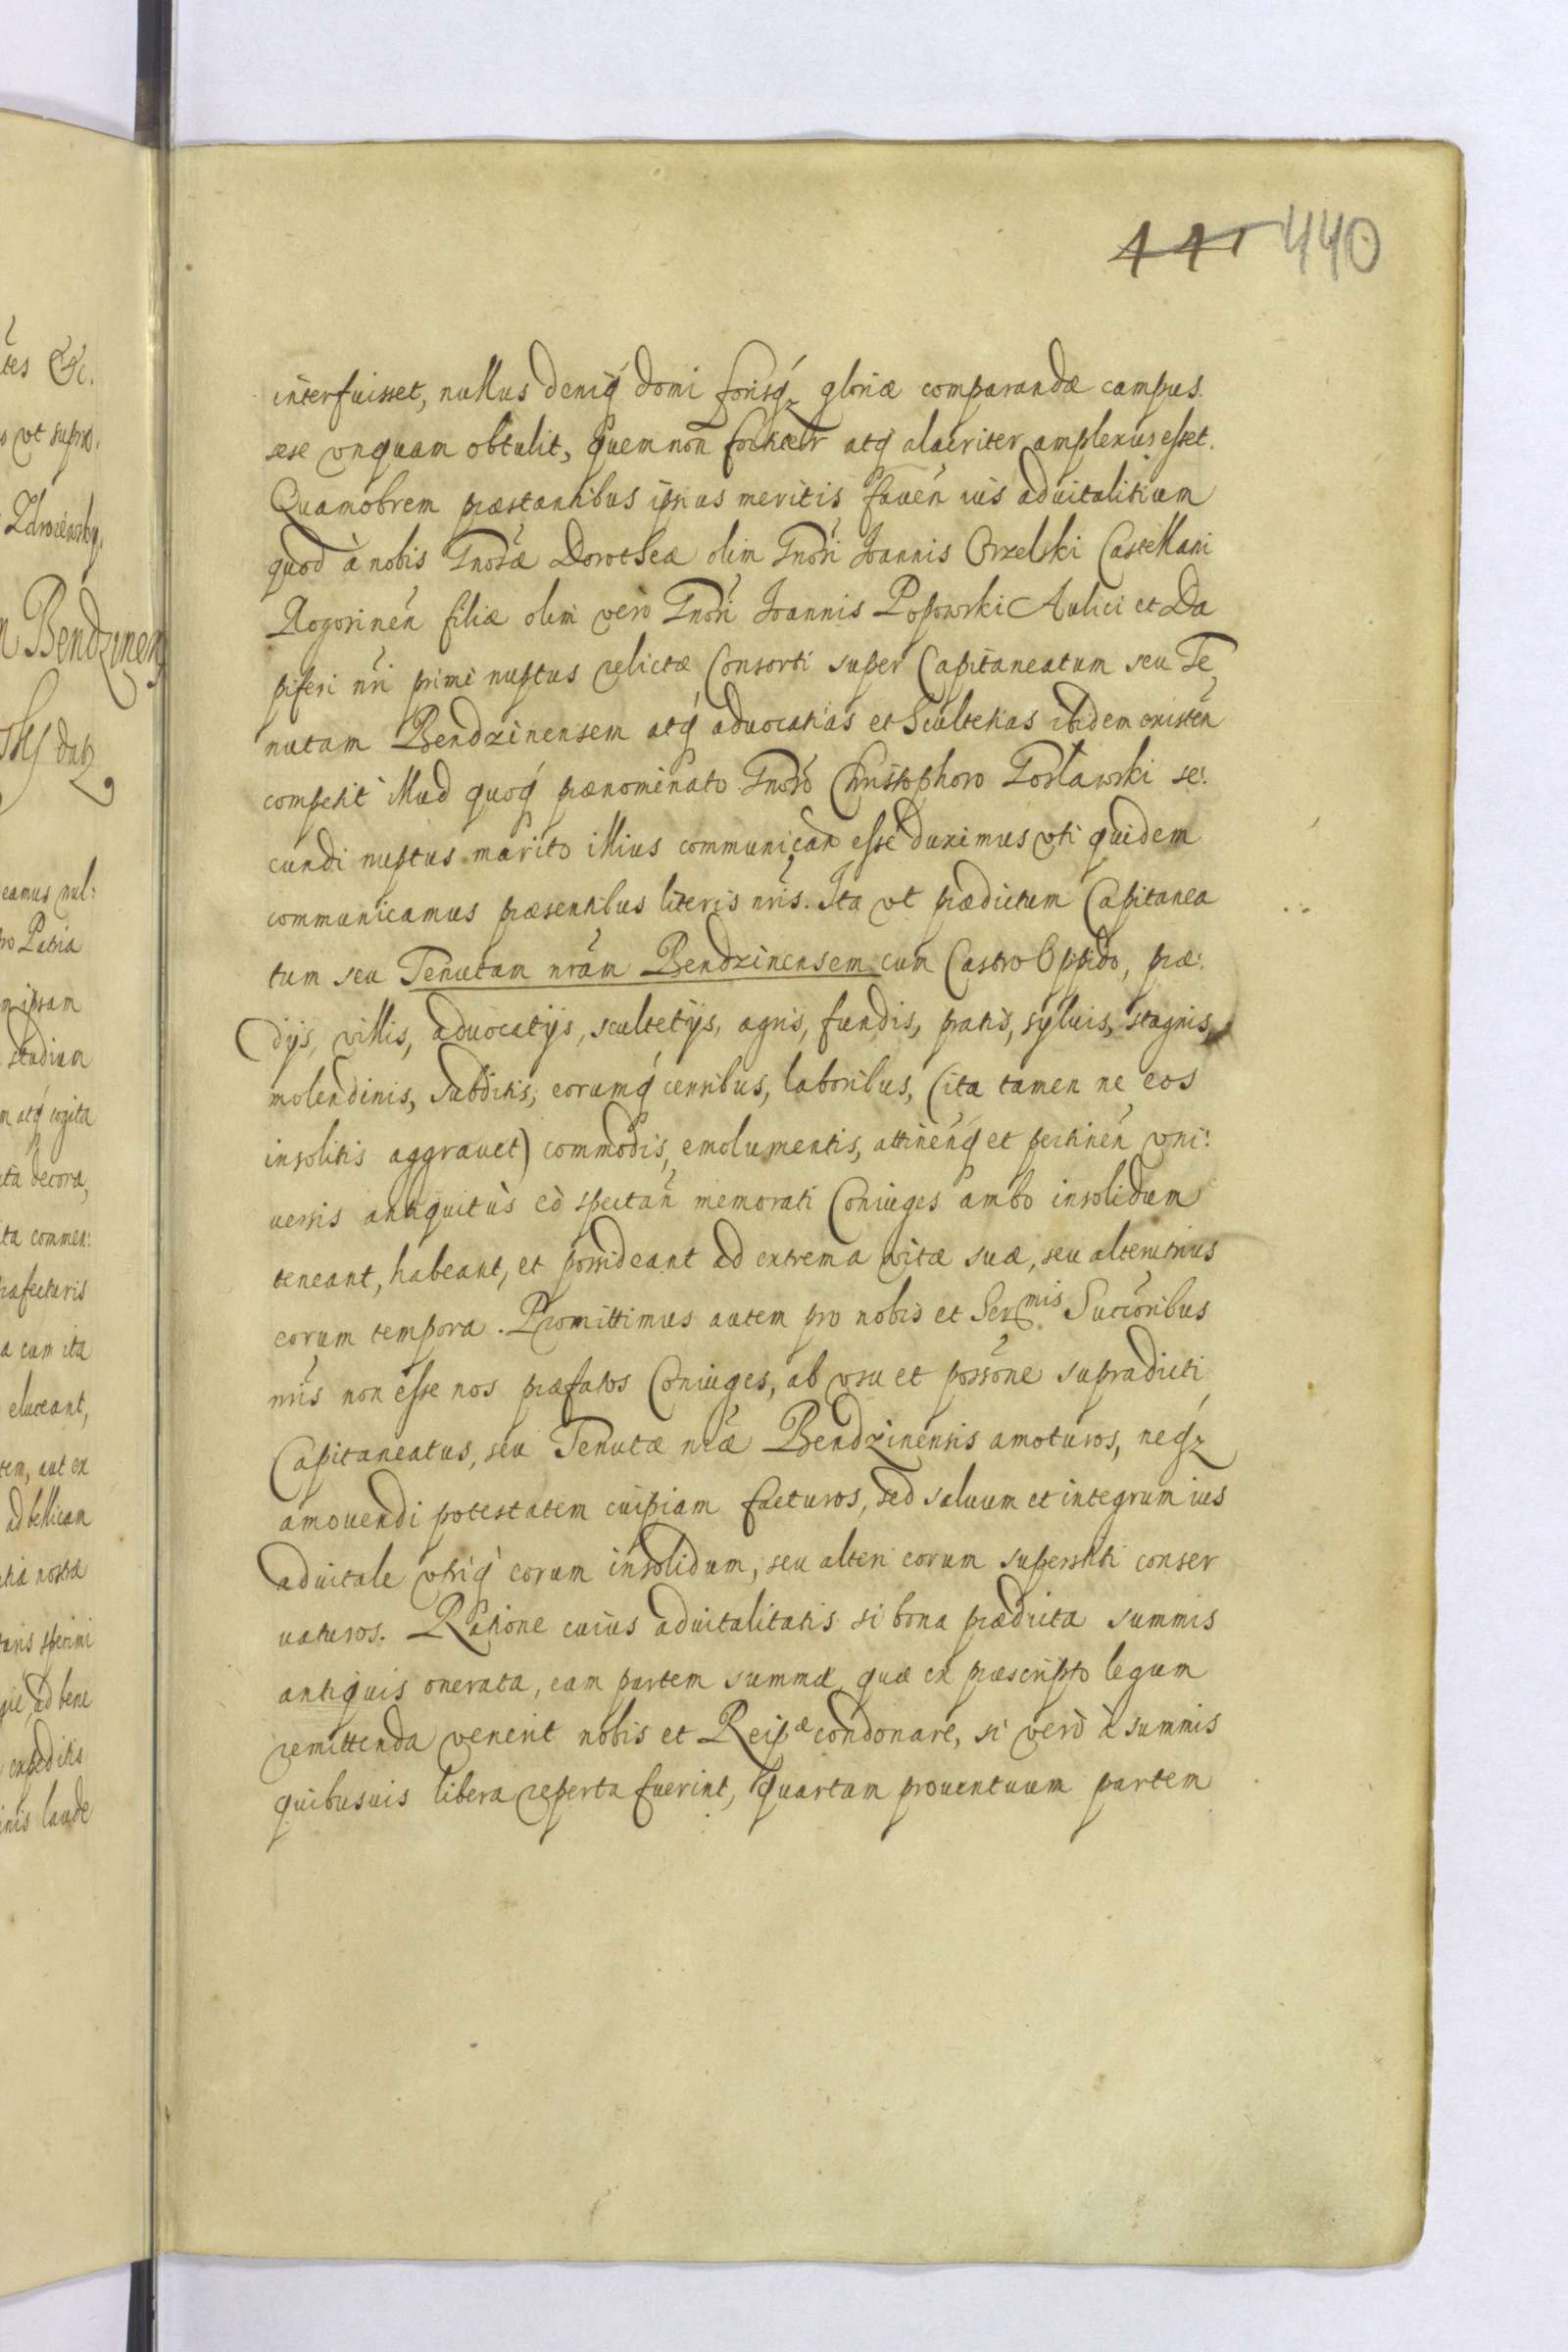 441 440
interfuisset, nullus deniq́ domi forisq́ꝫ gloriæ comparandæ campus
sese vnquam obtulit, quem non fortiter atq́ alacriter amplexus esset.
Quamobrem præstantibus ipsius meritis fauen̄ ius aduitalitium
quod à nobis Gnosæ Dorotheæ olim Gnosi Joannis Orzelski Castellani
Rogozinen̄ filiæ olim vero Gnosi Joannis Popowski Aulici et Da
piferi nri primi nuptus relictæ Consorti super Capitaneatum seu Te,
nutam Bendzinensem atq́ aduocatias et Scultetias ibidem existen̄
competit illud quoq́ prænominato Gnoso Christophoro se:
cundi nuptus marito illius communican̄ esse duximus vti quidem
communicamus præsentibus literis nris. Ita vt prædictum Capitanea
tum seu Tenutam nram Bendzinensem cum Castro Oppido, præ:
dijs, villis, aduocatijs, scultetijs, agris, fundis, pratis, syluis, stagnis,
molendinis, subditis, eorumq́ censibus, laboribus, (ita tamen ne eos
insolitis aggrauet) commodis, emolumentis, attinen̄q́ et pertinen̄ vni:
uersis antiquitùs eò spectan̄ memorati Coniuges ambo insolidum
teneant, habeant, et possideant ad extrema vitæ suæ, seu alterutrius
eorum tempora. Promittimus autem pro nobis et Sermis Succoribus
nris non esse nos præfatos Coniuges, ab vsu et possone supradicti
Capitaneatus, seu Tenutæ nræ Bendzinensis amoturos, neq́ꝫ
amouendi potestatem cuipiam facturos, sed saluum et integrum ius
aduitale vtriq́ eorum insolidum, seu alteri eorum superstiti conser
uaturos. Ratione cuius aduitalitatis si bona prædicta summis
antiquis onerata, eam partem summæ, quæ ex præscripto legum
remittenda venerit nobis et Reipæ condonare, si verò à summis
quibusuis libera reperta fuerint, quartam prouentuum partem